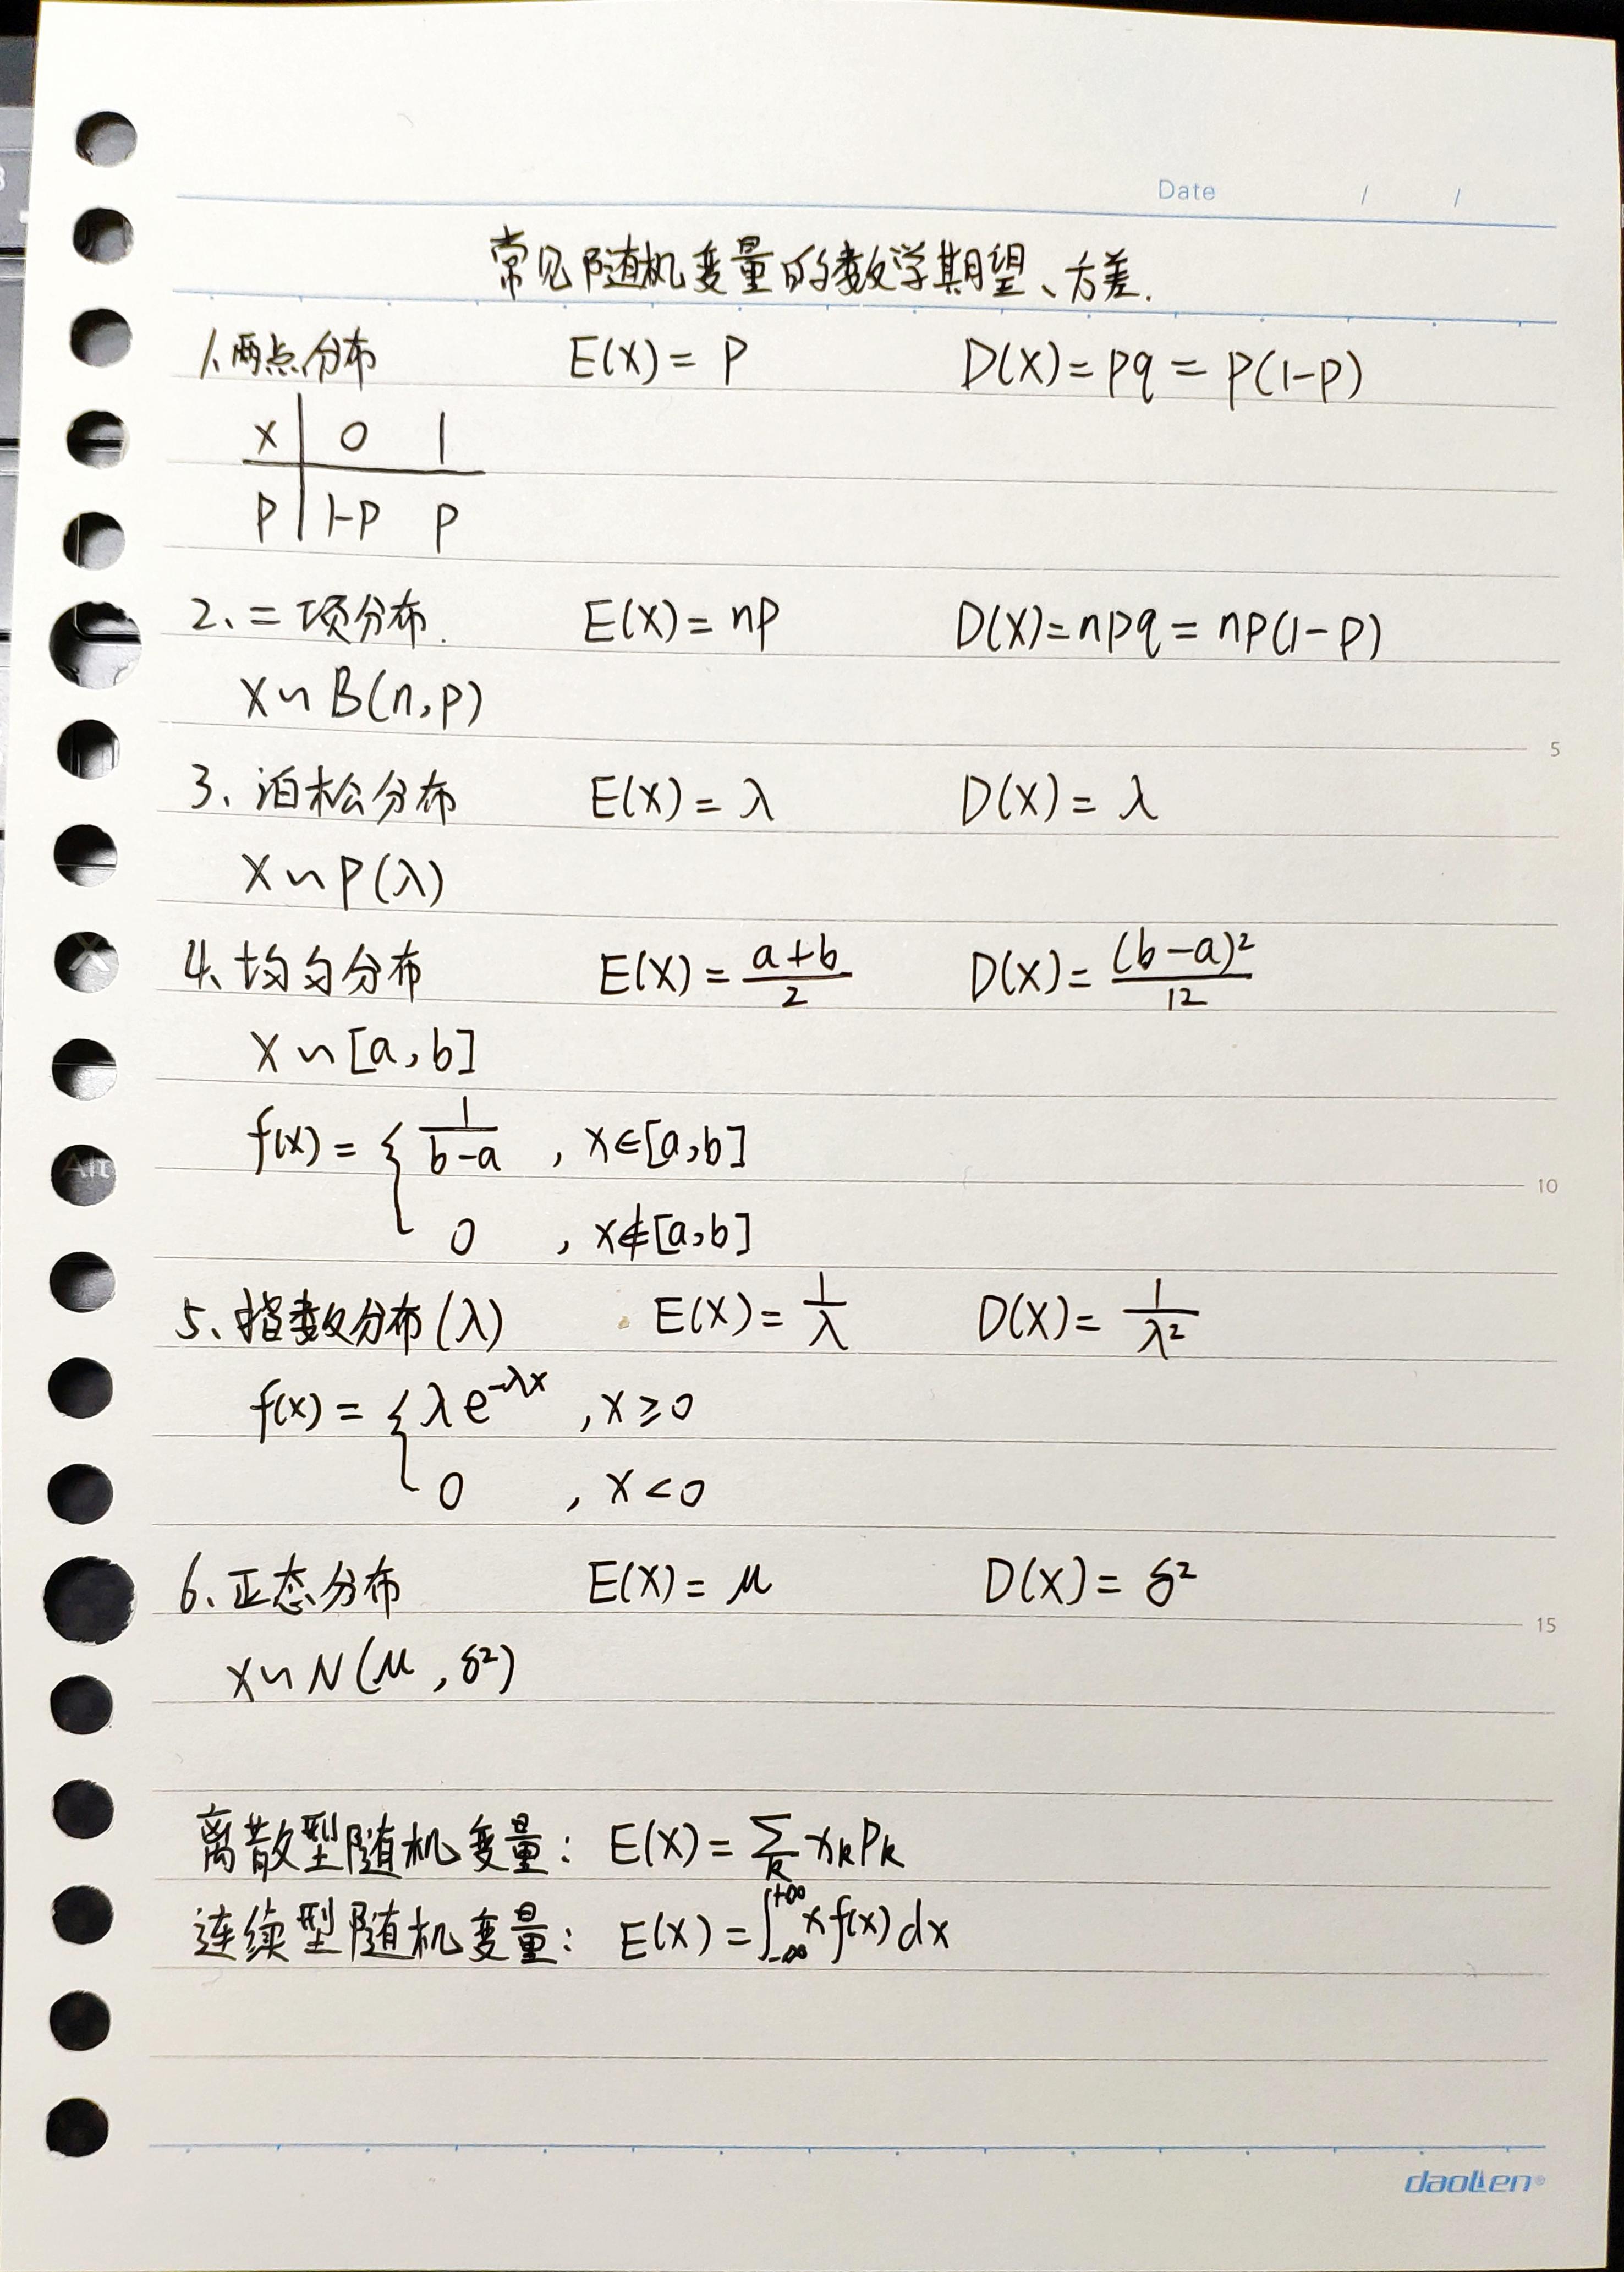 Date / /
常见随机变量的数学期望、方差.
1、两点分布 E(X)=P D(X)=Pq=P(1-P)
X | 0 1
P | 1-P P
2、二项分布. E(X)=nP D(X)=nPq=nP(1-P)
X~B(n,p)
5
3、泊松分布 E(X)=λ D(X)=λ
X~P(λ)
4、均匀分布 E(X)=\frac{a+b}{2} D(X)=\frac{(b-a)²}{12}
X~[a,b]
f(x)={ \frac{1}{b-a} , x∈[a,b]
10
0 , x∉[a,b]
5、指数分布(λ) E(X)=\frac{1}{λ} D(X)=\frac{1}{λ²}
f(x)={ λe^{-λx} , x≥0
0 , x<0
6、正态分布 E(X)=μ D(X)=δ²
15
X~N(μ,δ²)
离散型随机变量: E(X)=∑_{k} x_k P_k
连续型随机变量: E(X)=∫_{-∞}^{+∞} x f(x) dx
daoLen®
Alt